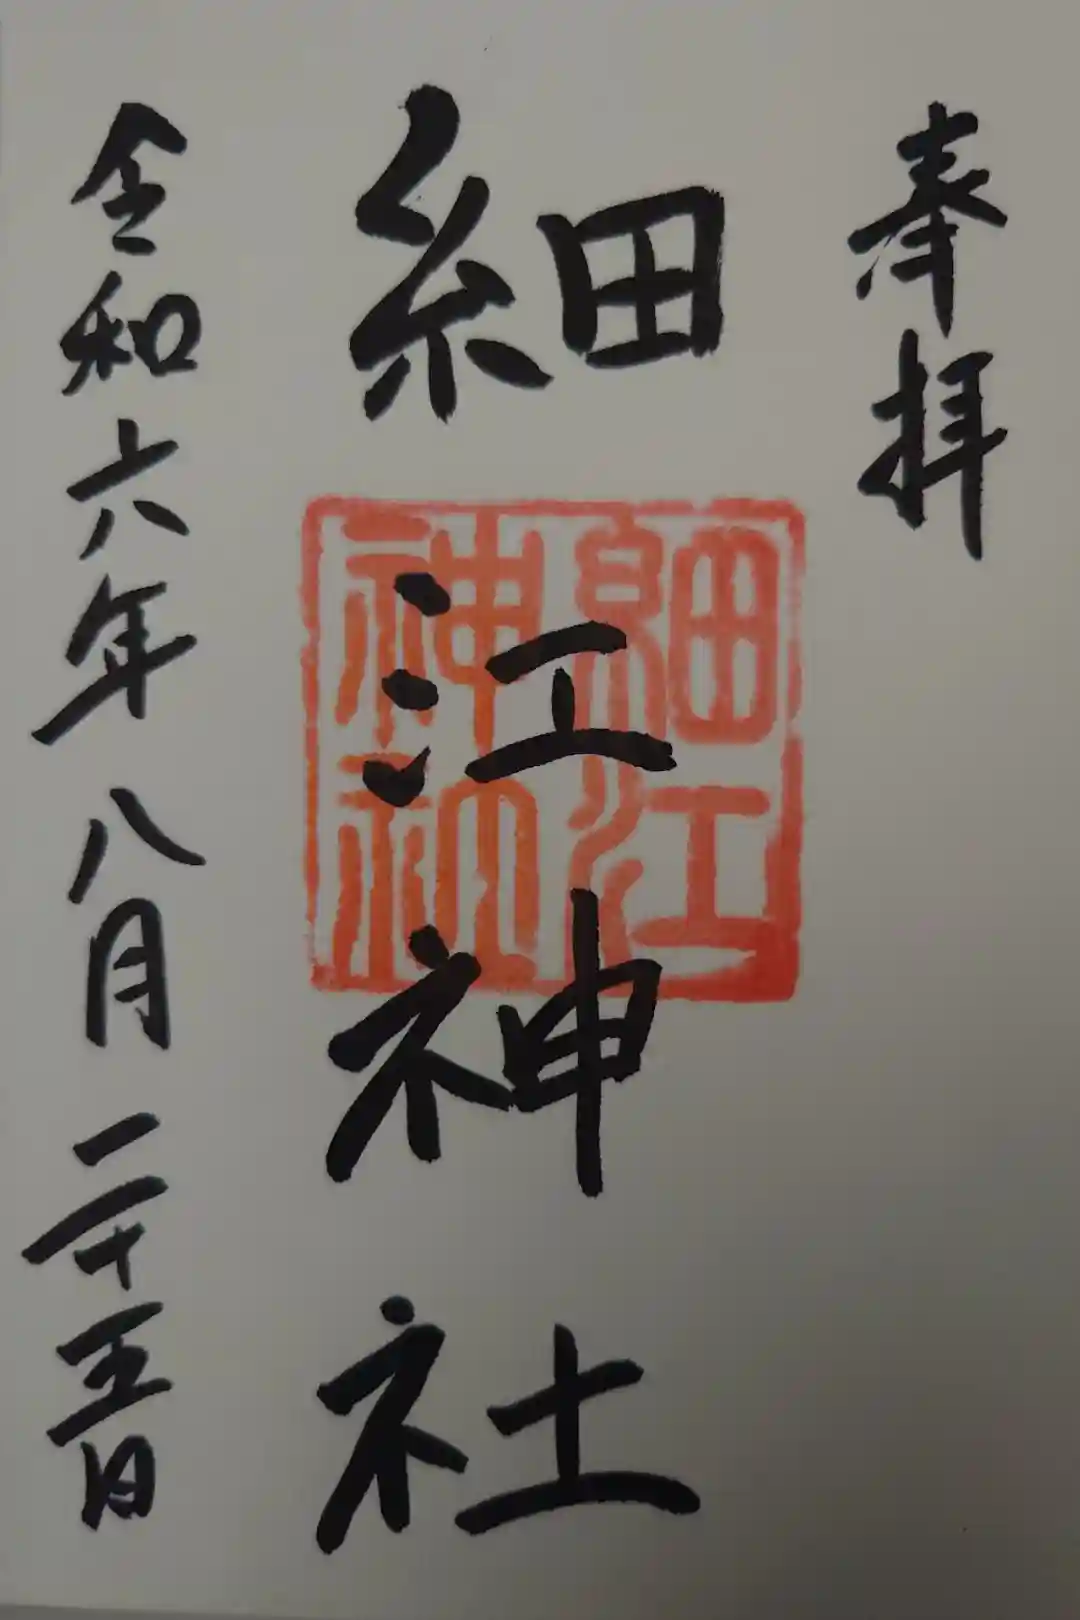 奉拝
細江神社
細江
神社
令和六年八月二十五日